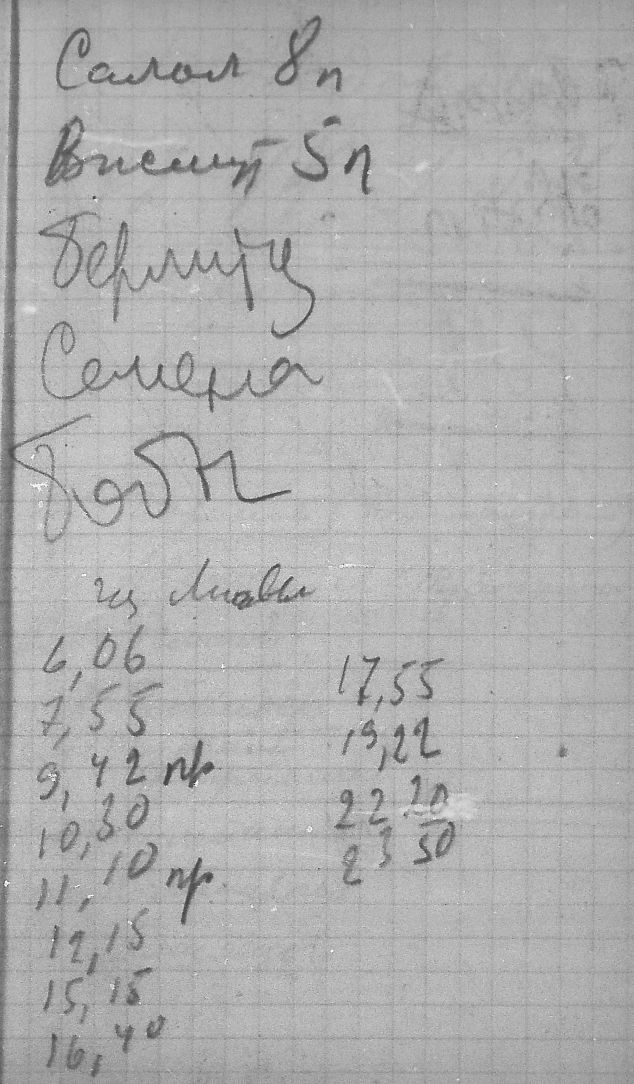 Салол 8п
Висмут 5п
Семена
из
6,06
7,55
9,42 пр
10,30
11,10 пр.
12,15
15,15
16,40
17,55
19,22
22 20
23 50